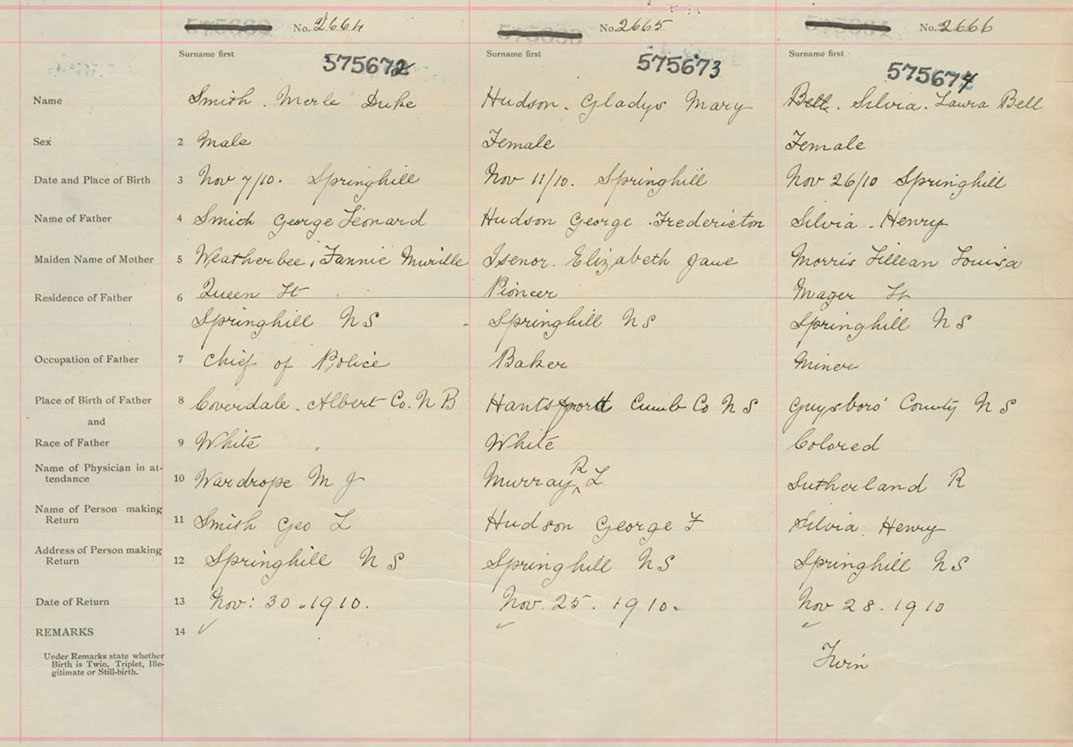 No. 2664 No. 2665 No. 2666
Surname first Surname first Surname first
575672 575673 575674
Name Smith. Merle Duke Hudson. Gladys Mary Bell. Silvia. Laura Bell
Sex 2 Male Female Female
Date and Place of Birth 3 Nov 7/10. Springhill Nov 11/10. Springhill Nov 26/10 Springhill
Name of Father 4 Smith George Leonard Hudson George Fredericton Silvia. Henry
Maiden Name of Mother 5 Weatherbee, Fannie Murille Isenor. Elizabeth Jane Morris Lillean Louisa
Residence of Father 6 Queen St Pioneer Mager St
Springhill N S Springhill N S Springhill N S
Occupation of Father 7 Chief of Police Baker Miner
Place of Birth of Father 8 Coverdale. Albert Co. N B Hantsport Cumb Co N S Guysboro' County N S
and
Race of Father 9 White White Colored
Name of Physician in at-
tendance 10 Wardrope M J Murray R L Sutherland R
Name of Person making
Return 11 Smith Geo L Hudson George F Silvia. Henry
Address of Person making
Return 12 Springhill N S Springhill N S Springhill N S
Date of Return 13 Nov: 30. 1910. Nov. 25. 1910. Nov 28. 1910
REMARKS 14
Under Remarks state whether
Birth is Twin, Triplet, Ille-
gitimate or Still-birth.
Twin